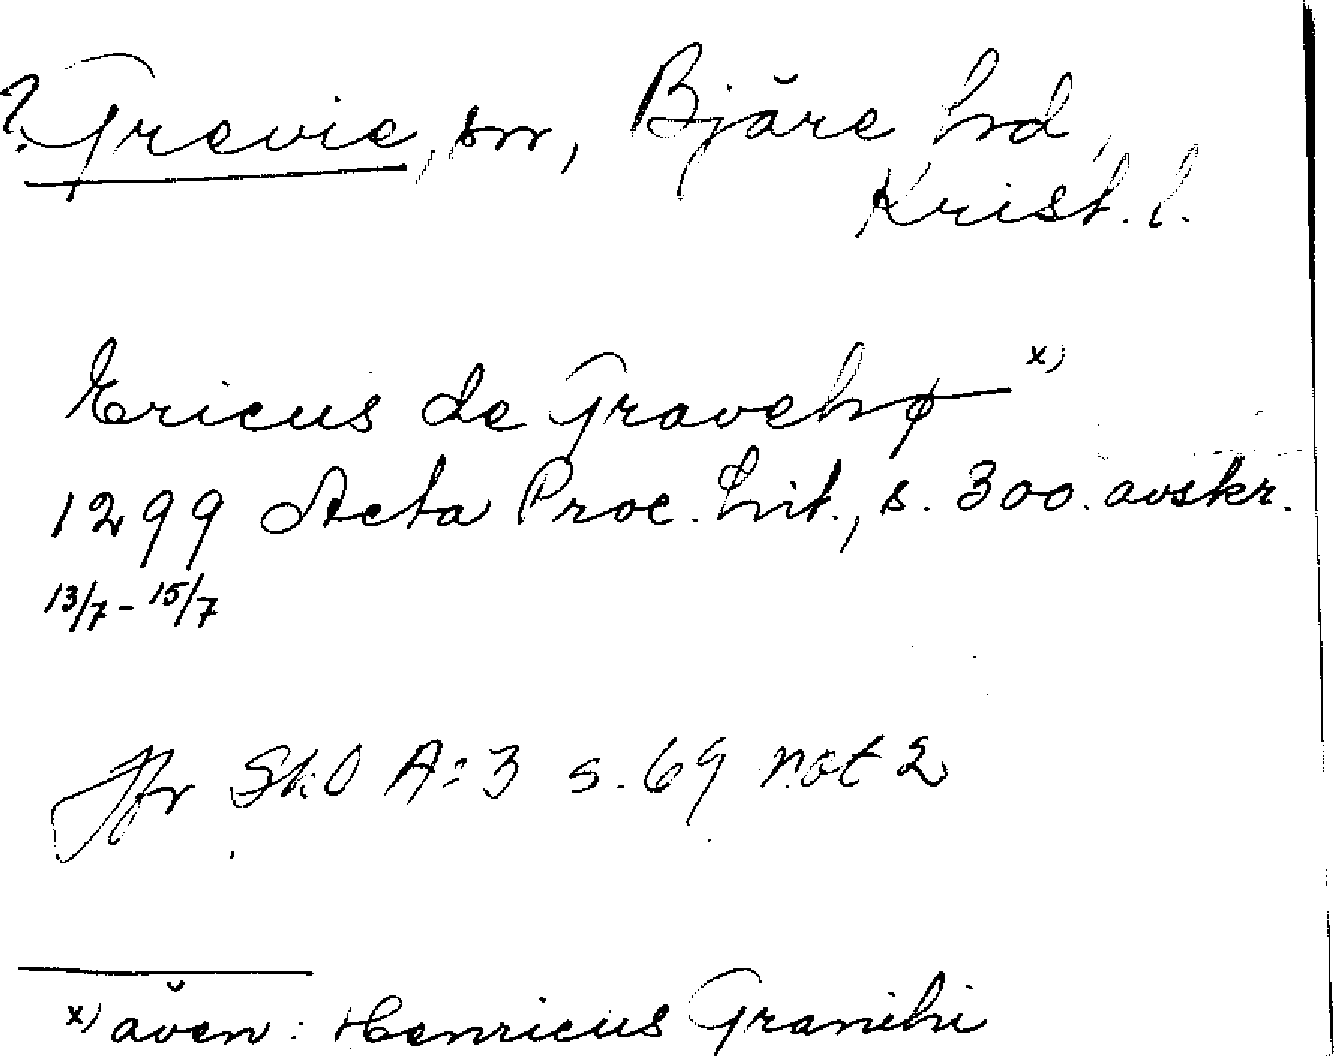 ? Grevie, sn, Bjäre hrd,
Krist. l.
Ericus de Gravehø x)
1299 Acta Proc. Lit., s. 300. avskr.
13/7 - 15/7
Jfr SkO A:3 s. 69 not 2
x) även: Henricus Granihi